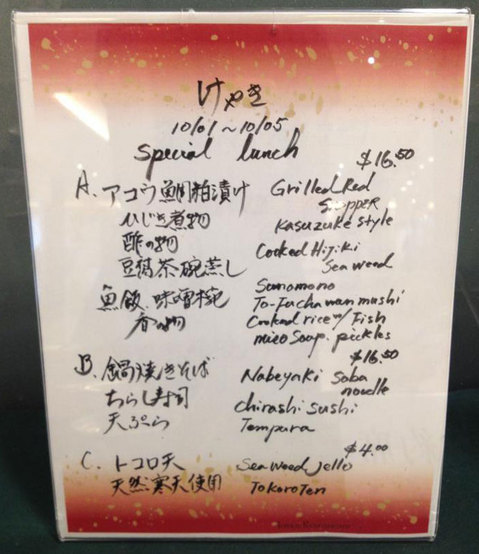 けやき
10/01~10/05
special lunch
$16.50
A. アコウ鯛粕漬け Grilled Red
Snapper
ひじき煮物 Kasuzuke style
酢の物 Cooked Hijiki
Sea weed
豆腐茶碗蒸し Sunomono
魚飯、味噌椀 To-Fu chawanmushi
香の物 Cooked rice w/ Fish
miso soup. pickles
$16.50
B. 鍋焼きそば Nabeyaki Soba
noodle
ちらし寿司 chirashi sushi
天ぷら Tempura
$4.00
C. トコロ天 Sea weed jello
天然寒天使用 Tokoro Ten